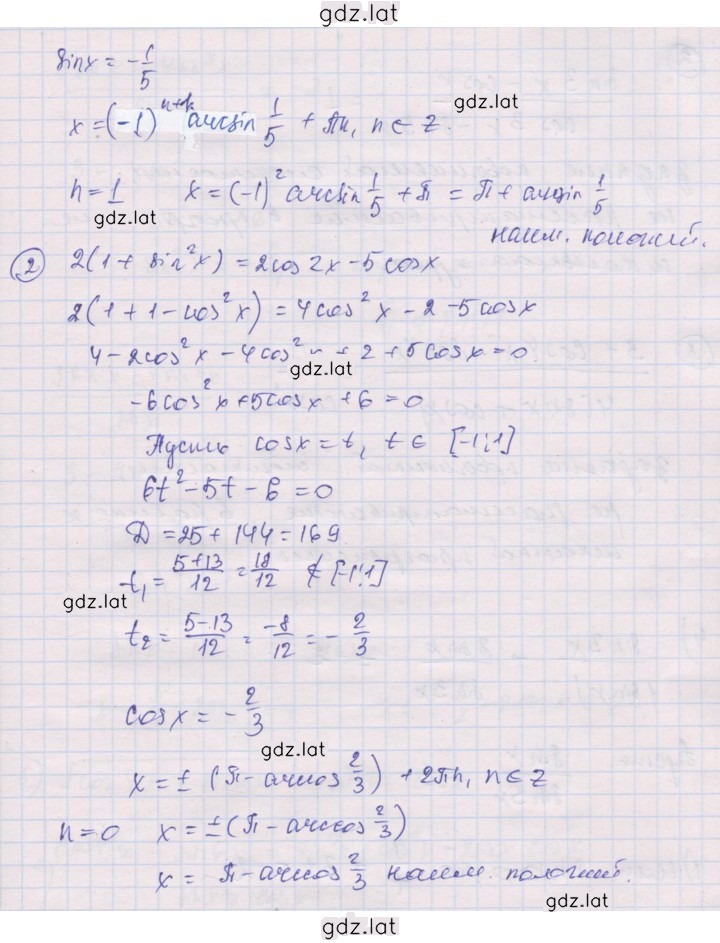 gdz.lat
sin x = -1/5
gdz.lat
x = (-1)^{n+1} arcsin 1/5 + πn, n ∈ Z.
n = 1 x = (-1)^2 arcsin 1/5 + π = π + arcsin 1/5
gdz.lat
наим. положит.
2 2(1 + sin^2 x) = 2cos 2x - 5 cos x
2(1 + 1 - cos^2 x) = 4cos^2 x - 2 - 5 cos x
4 - 2cos^2 x - 4cos^2 x + 2 + 5 cos x = 0.
gdz.lat
-6cos^2 x + 5cos x + 6 = 0
Пусть cos x = t, t ∈ [-1;1]
6t^2 - 5t - 6 = 0
D = 25 + 144 = 169
t_1 = (5+13)/12 = 18/12 ∉ [-1;1]
gdz.lat
t_2 = (5-13)/12 = -8/12 = -2/3
cos x = -2/3
gdz.lat
x = ± (π - arccos 2/3) + 2πn, n ∈ Z
n = 0 x = ±(π - arccos 2/3)
x = π - arccos 2/3 наим. положит.
gdz.lat
gdz.lat